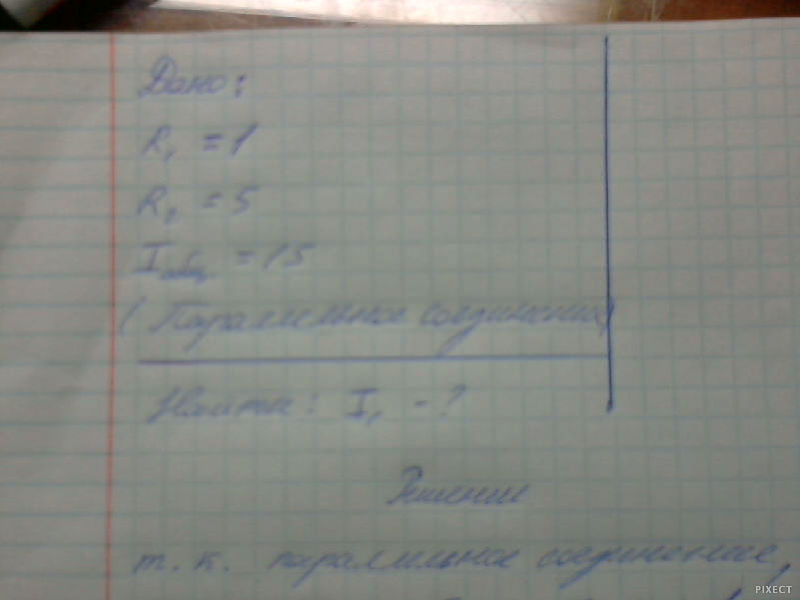 Дано:
R₁ = 1
R₂ = 5
Iобщ = 15
(Параллильное соединение)
Найти: I₁ - ?
Решение
т. к. параллильное соединение,
PIXECT